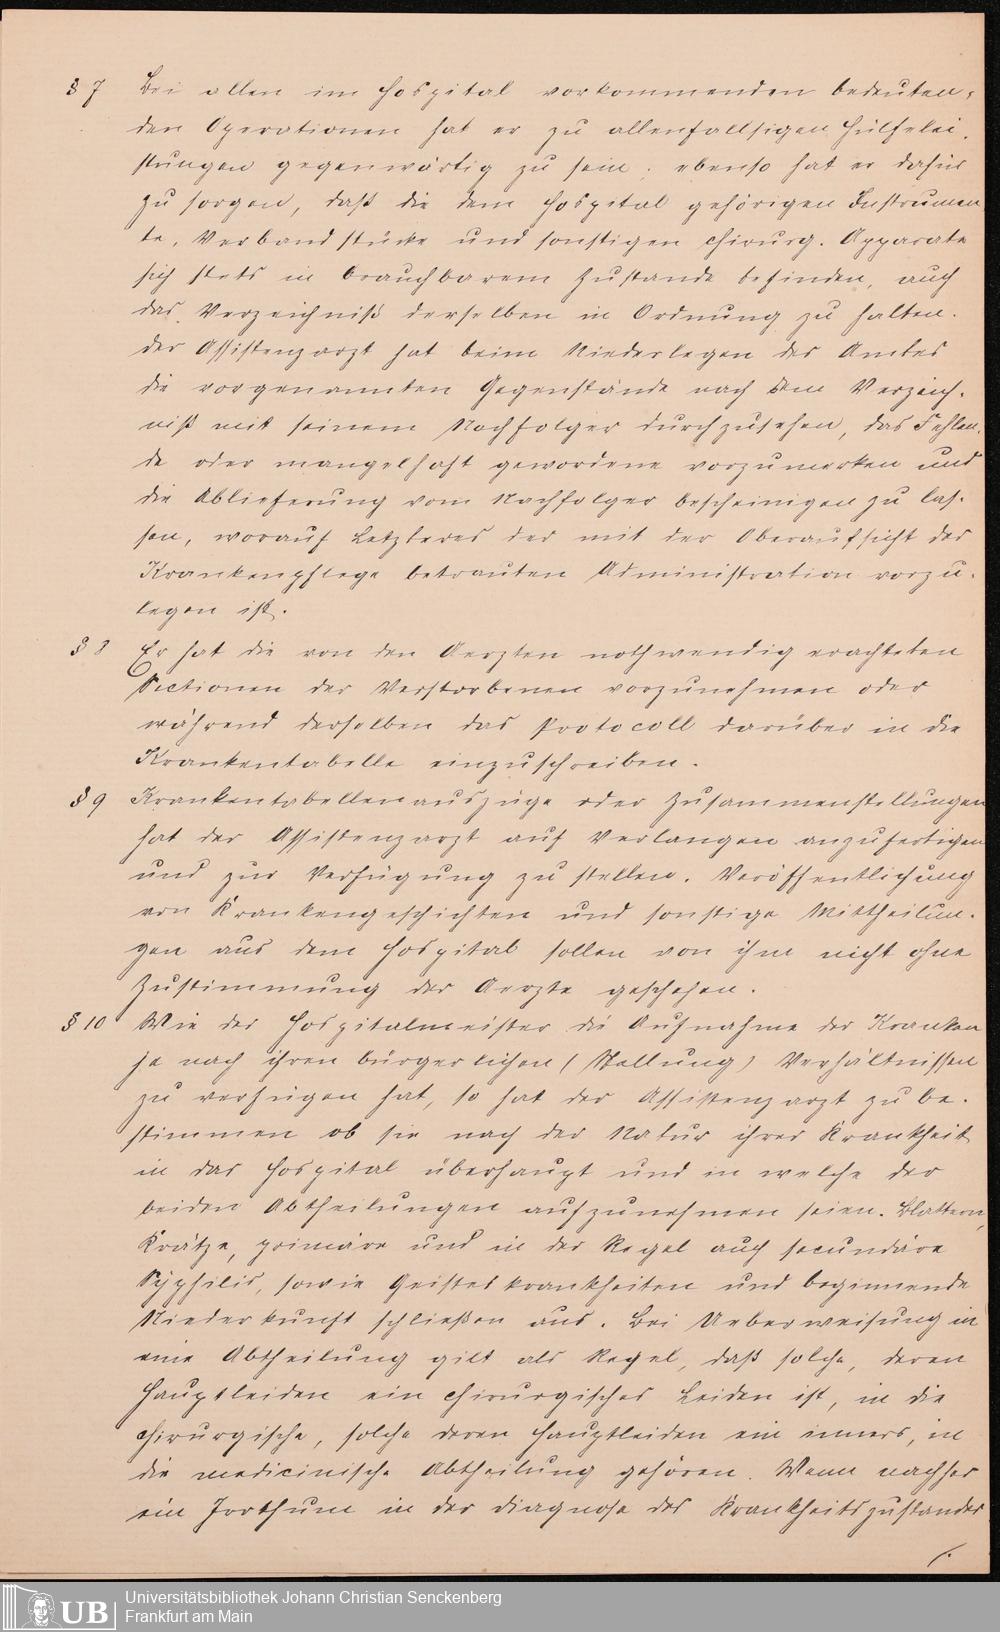 § 7 Bei allen im Hospital vorkommenden bedeuten-
den Operationen hat er zu allenfallsigen Hülfelei-
stungen gegenwärtig zu sein; ebenso hat er dafür
zu sorgen, daß die dem Hospital gehörigen Instrumen
te, Verbandstücke und sonstigen chirurg. Apparate
sich stets in brauchbarem Zustande befinden, auch
das Verzeichniß derselben in Ordnung zu halten.
Der Assistenzarzt hat beim Niederlegen des Amtes
die vorgenannten Gegenstände nach dem Verzeich-
niß mit seinem Nachfolger durchzusehen, das Fehlen-
de oder mangelhaft gewordene vorzumerken und
die Ablieferung vom Nachfolger bescheinigen zu las-
sen, worauf Letzteres der mit der Oberaufsicht der
Krankenpflege betrauten Administration vorzu-
legen ist.
§ 8 Er hat die von den Aerzten nothwendig erachteten
Sectionen der Verstorbenen vorzunehmen oder
während derselben das Protocoll darüber in die
Krankentabelle einzuschreiben.
§ 9 Krankentabellenauszüge oder Zusammenstellungen
hat der Assistenzarzt auf Verlangen anzufertigen
und zur Verfügung zu stellen. Veröffentlichung
von Krankengeschichten und sonstige Mittheilun-
gen aus dem Hospital sollen von ihm nicht ohne
Zustimmung der Aerzte geschehen.
§ 10 Wie der Hospitalmeister die Aufnahme der Kranken
je nach ihren bürgerlichen (Stellung) Verhältnissen
zu verfügen hat, so hat der Assistenzarzt zu be-
stimmen ob sie nach der Natur ihrer Krankheit
in das Hospital überhaupt und in welche der
beiden Abtheilungen aufzunehmen seien. Blattern,
Krätze, primäre und in der Regel auch secundäre
Syphilis, sowie Geisteskrankheiten und beginnende
Niederkunft schließen aus. Bei Ueberweisung in
eine Abtheilung gilt als Regel, daß solche, deren
Hauptleiden ein chirurgisches Leiden ist, in die
chirurgische, solche deren Hauptleiden ein inners, in
die medicinische Abtheilung gehören. Wenn nachher
ein Irrthum in der Diagnose des Krankheitszustandes
/.
UB Universitätsbibliothek Johann Christian Senckenberg
Frankfurt am Main